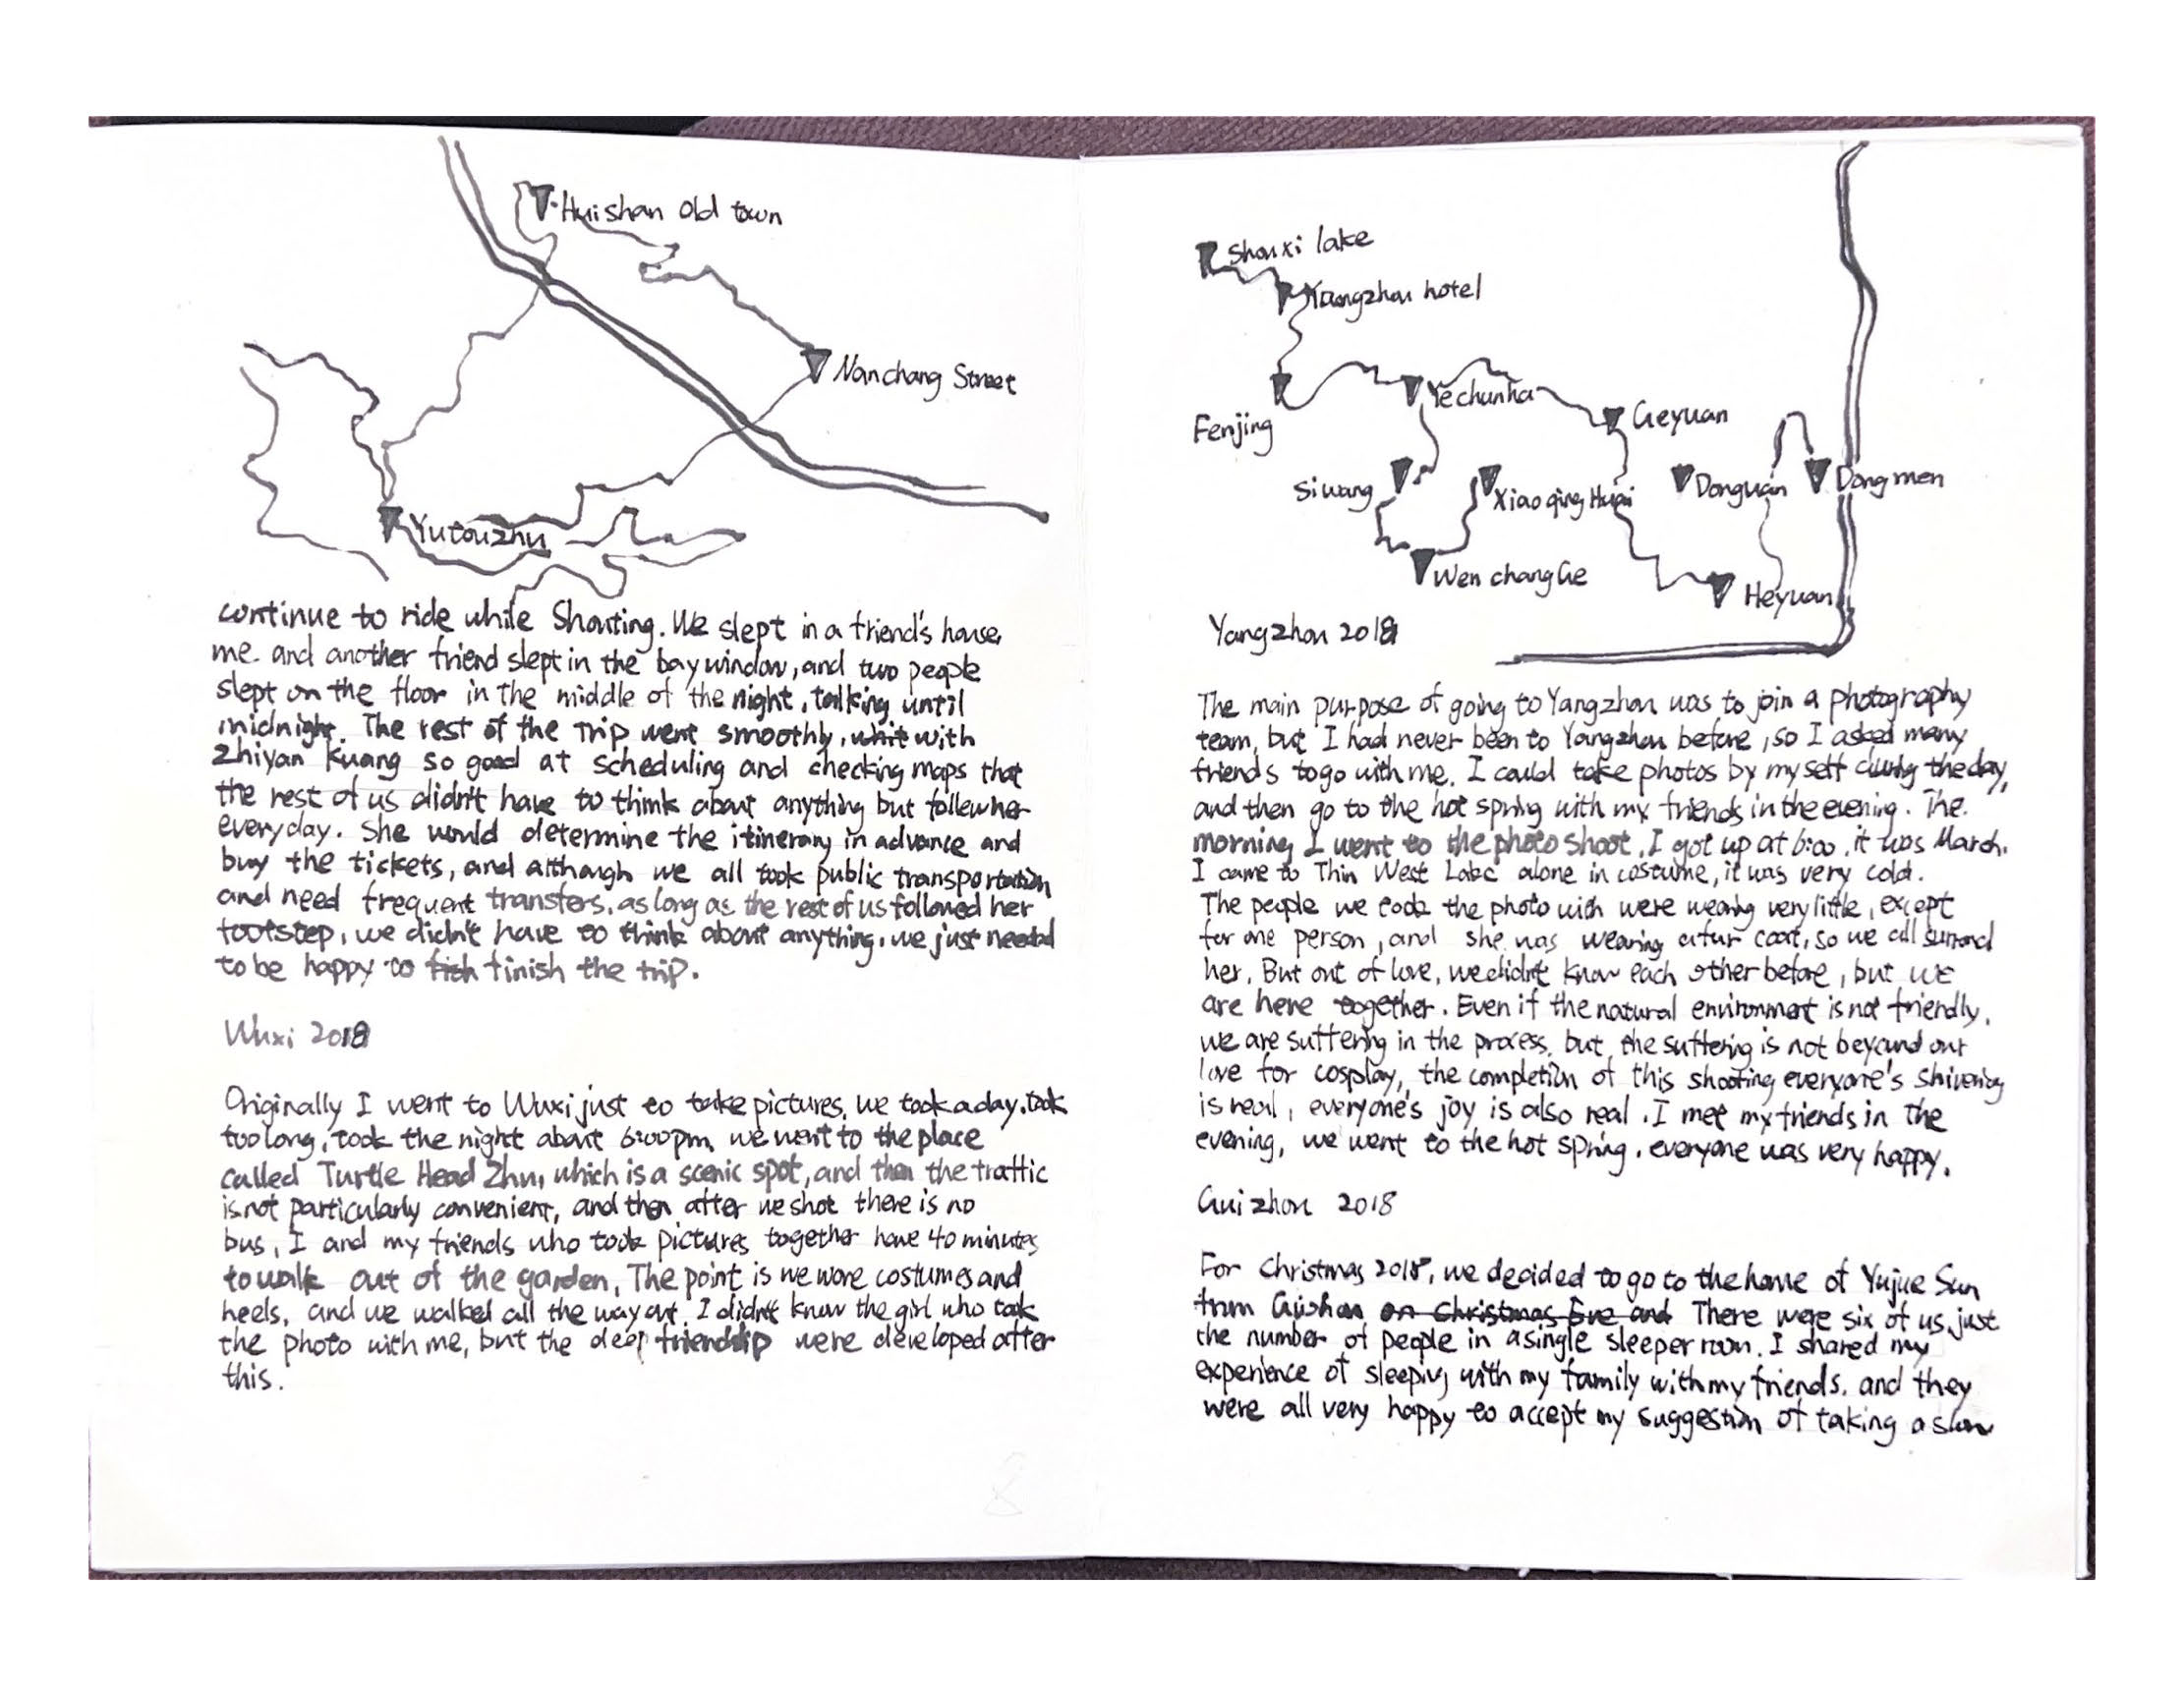 Huishan Old town
Nanchang Street
Yutouzhu
continue to ride while Shouting. We slept in a friend's house,
me. and another friend slept in the bay window, and two people
slept on the floor in the middle of the night, talking until
midnight. The rest of the Trip went smoothly, with
Zhiyan Kuang so good at scheduling and checking maps that
the rest of us didn't have to think about anything but follow her
everyday. She would determine the itinerary in advance and
buy the tickets, and although we all took public transportation
and need frequent transfers, as long as the rest of us followed her
footstep, we didn't have to think about anything, we just needed
to be happy to finish the trip.
Wuxi 2018
Originally I went to Wuxi just to take pictures, we took a day, took
too long, took the night about 6:00pm, we went to the place
called Turtle Head Zhu, which is a scenic spot, and then the traffic
is not particularly convenient, and then after we shot there is no
bus, I and my friends who took pictures together have 40 minutes
to walk out of the garden, The point is we wore costumes and
heels, and we walked all the way out. I didn't know the girl who took
the photo with me, but the deep friendship were developed after
this.
8
Shouxi lake
Yangzhou hotel
Fenjing
Yechunha
Geyuan
Siwang
Xiao qing Huai
Donguan
Dongmen
Wen chang Ge
Heyuan
Yangzhou 2018
The main purpose of going to Yangzhou was to join a photography
team, but I had never been to Yangzhou before, so I asked many
friends to go with me. I could take photos by myself during the day,
and then go to the hot spring with my friends in the evening. The
morning I went to the photo shoot, I got up at 6:00, it was March.
I came to Thin West Lake alone in costume, it was very cold.
The people we took the photo with were wearing very little, except
for one person, and she was wearing a fur coat, so we all surround
her. But out of love, we didn't know each other before, but we
are here together. Even if the natural environment is not friendly,
we are suffering in the process, but the suffering is not beyound our
love for cosplay, the completion of this shooting everyone's shivering
is real, everyone's joy is also real. I met my friends in the
evening, we went to the hot spring. everyone was very happy.
Guizhou 2018
For Christmas 2018, we decided to go to the home of Yujue Sun
from Guizhou on Christmas Eve and There were six of us, just
the number of people in a single sleeper room. I shared my
experience of sleeping with my family with my friends, and they
were all very happy to accept my suggestion of taking a slow